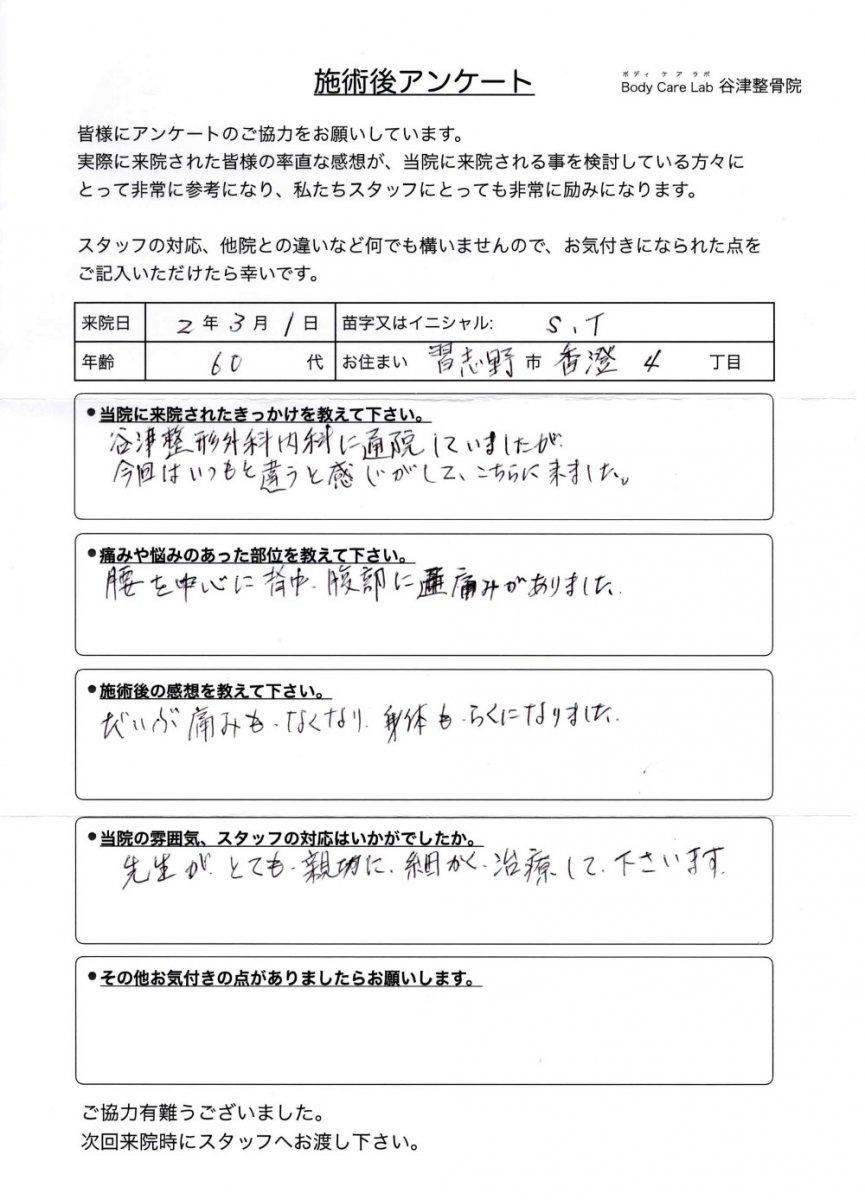 施術後アンケート
ボディ ケア ラボ
Body Care Lab 谷津整骨院
皆様にアンケートのご協力をお願いしています。
実際に来院された皆様の率直な感想が、当院に来院される事を検討している方々に
とって非常に参考になり、私たちスタッフにとっても非常に励みになります。
スタッフの対応、他院との違いなど何でも構いませんので、お気付きになられた点を
ご記入いただけたら幸いです。
来院日 2年3月1日 苗字又はイニシャル: S.T
年齢 60代 お住まい 習志野市 香澄 4 丁目
●当院に来院されたきっかけを教えて下さい。
谷津整形外科内科に通院していましたが
今回はいつもと違うと感じがして、こちらに来ました。
●痛みや悩みのあった部位を教えて下さい。
腰を中心に背中.腹部に痛みがありました.
●施術後の感想を教えて下さい。
だいぶ痛みも.なくなり.身体も.らくになりました.
●当院の雰囲気、スタッフの対応はいかがでしたか。
先生が.とても.親切に.細かく.治療して.下さいます.
●その他お気付きの点がありましたらお願いします。
ご協力有難うございました。
次回来院時にスタッフへお渡し下さい。